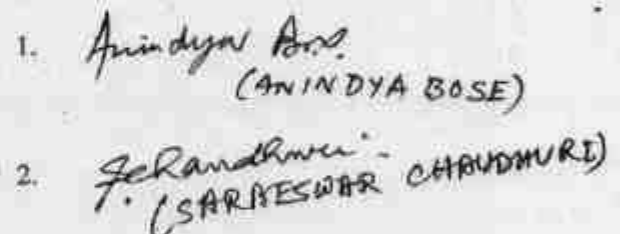 1. Anindya Bose
(ANINDYA BOSE)
2. S. Chaudhuri
(SARBESWAR CHAUDHURI)